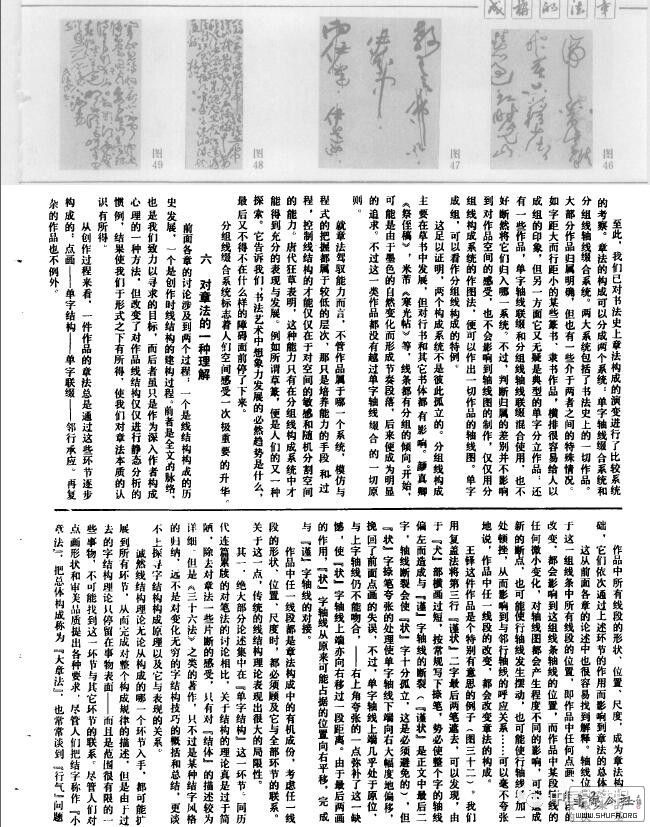 章法的构成
图46
图47
图48
图49
至此,我们已对书法史上章法构成的演变进行了比较系统
的考察。章法的构成可以分成两个系统:单字轴线缀合系统和
分组线轴线缀合系统。两大系统包括了书法史上的一切作品。
大部分作品归属明确,但也有一些介于两者之间的特殊情况。
如字距大而行距小的某些篆书、隶书作品,横排很容易给人以
成组的印象,但另一方面它又无疑是典型的单字分立作品;还
有一些作品,单字轴线联缀和分组线轴线联缀混合使用,也不
好断然将它们归入哪一系统。不过,判断归属的差别并不影响
到对作品空间的感受,也不会影响到轴线图的制作,仅仅用分
组线构成系统的作图法,便可以作出一切作品的轴线图。单字
成组,可以看作分组线构成的特例。
这足以证明,两个构成系统不是彼此孤立的。分组线构成
主要在草书中发展,但对行书和其它书体都有影响。颜真卿
《祭侄稿》,米芾《寒光帖》等,线条都有分组的倾向;开始,
可能是由于墨色的自然变化而形成节奏段落,后来便成为明显
的追求。不过这一类作品都没有越过单字轴线缀合的一切原
则。
就章法驾驭能力而言,不管作品属于哪一个系统,模仿与
程式的把握都属于较低的层次,那只是培养能力的手段和过
程,控制线结构的才能仅仅在于对空间的敏感和随机分割空间
的能力。唐代狂草表明,这种能力只有在分组线构成系统中才
能得到充分的表现与发展。例如所谓草篆,便是人们的又一种
探索。它告诉我们:书法艺术中想象力发展的必然趋势是什么,
最后又不得不在什么样的障碍面前停了下来。
分组线缀合系统标志着人们空间感受一次极重要的升华。
六 对章法的一种理解
前面各章的讨论涉及到两个过程:一个是线结构构成的历
史发展,一个是创作时线结构的建构过程。前者是全文的脉络,
也是我们致力以寻求的目标,而后者虽只是作为深入作者构成
心理的一种方法,但改变了对作品线结构仅仅进行静态分析的
惯例,结果使我们于形式之下有所得,使我们对章法本质的认
识有所得。
从创作过程来看,一件作品的章法总是通过这些环节逐步
构成的:点画——单字结构——单字联缀——邻行承应。再复
杂的作品也不例外。
作品中所有线段的形状、位置、尺度,成为章法构成的基
础,它们依次通过上述环节的作用而影响到章法的总体构成。
这从前面各章的论述中也很容易找到解释。轴线位置取决
于这一组线条中所有线段的位置,即作品中任何点画的
改变,都会影响到这组线条轴线的位置,而作品中某段轴线的
任何微小变化,对轴线图都会产生程度不同的影响,可能造成
新的断点,也可能使行轴线发生变动,也可能使行轴线增加一
处顿挫,从而影响到与邻行轴线的呼应关系……可以毫不夸张
地说,作品中任一线段的改变,都会改变章法的构成。
王铎这件作品是个特别有意思的例子(图三十二)。我们
用复盖法将第三行『谨状』二字最后两笔遮去,可以发现,由
于『犬』部横画过短,按常规写下捺笔,势必使整个字的轴线
偏左而造成与『谨』字轴线的断裂。『谨状』是正文中最后二
字,轴线断裂会使『状』字十分孤立,这是必须避免的,但
『状』字捺笔夸张的处理使单字轴线下端向右大幅度地偏移,
挽回了前面点画的失误。不过,单字轴线上端几乎处于原位,
与上字轴线仍不能吻合——右上角夸张的一点弥补了这一缺
憾,使『状』字轴线上端亦向右移过一段距离。由于最后两画
的作用,『状』字轴线从原来可能占据的位置向右平移,完成
与『谨』字轴线的对接。
作品中任一线段都是章法构成中的有机成份,考虑任一线
段的形状、位置、尺度时,都必须顾及它与全部环节的联系。
关于这一点,传统的线结构理论表现出很大的局限性。
其一,绝大部分论述集中在『单字结构』这一环节。同历
代连篇累牍的对笔法的讨论相比,关于结构的理论真是过于简
陋,除去对章法一些片断的感受,只有对『结体』的描述较为
详细。但是《三十六法》之类的著作,只不过是某种结字风格
的归纳,远不是对变化无穷的字结构技巧的概括和总结,更谈
不上探寻字结构构成原理以及它与表现的关系。
诚然线结构理论无论从构成的哪一个环节入手,都可能扩
展到所有环节,从而完成对整个构成规律的描述,但是由于过
去的字结构理论只停留在事物表面——而且是范围很有限的一
些事物,不可能找到这一环节与其它环节的联系。尽管人们对
点画形状和审美品质提出各种要求,尽管人们把结字称作『小
章法』,把总体构成称为『大章法』,也常常谈到『行气』问题
WWW.SHUFA.ORG